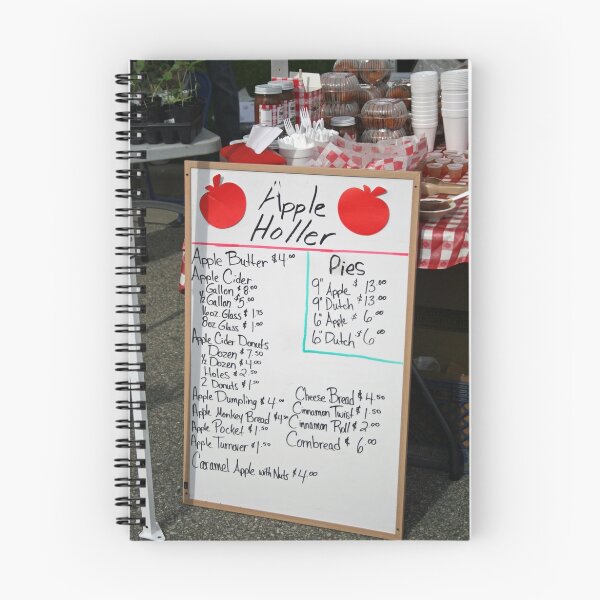 Apple
Holler
Apple Butter $4.00
Apple Cider
Gallon $8.00
½ Gallon $5.00
16oz Glass $1.75
8oz Glass $1.00
Apple Cider Donuts
Dozen $7.50
½ Dozen $4.00
Holes $2.50
2 Donuts $1.50
Apple Dumpling $4.00
Apple Monkey Bread $4.50
Apple Pocket $1.50
Apple Turnover $1.50
Caramel Apple with Nuts $4.00
Pies
9" Apple $13.00
9" Dutch $13.00
6" Apple $6.00
6" Dutch $6.00
Cheese Bread $4.50
Cinnamon Twist $1.50
Cinnamon Roll $2.00
Cornbread $6.00